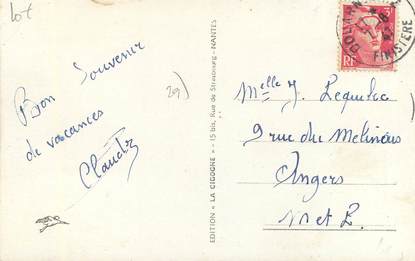 lot
Bon Souvenir
de vacances
Claude
29)
EDITION « LA CIGOGNE » - 15 bis, Rue de Strasbourg - NANTES
RF
FINISTERE
Melle J. Lequilec
9 rue du
Angers
M et L.